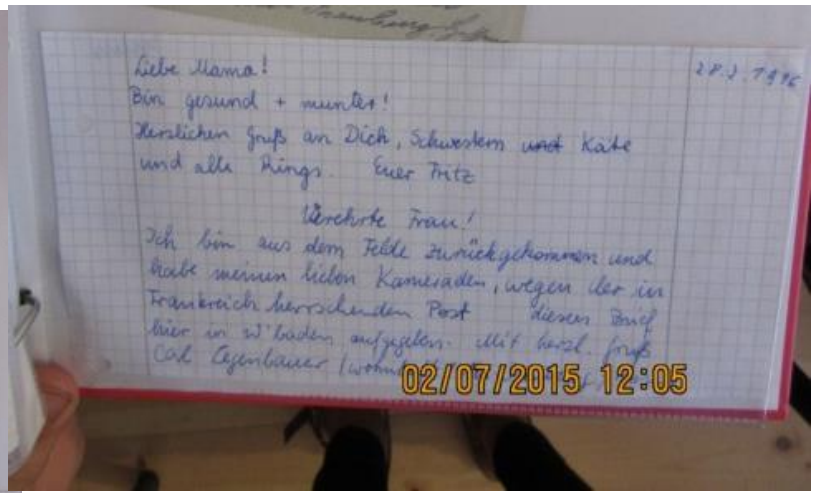 Liebe Mama!
28.2.1916
Bin gesund + munter!
Herzlichen Gruß an Dich, Schwestern und Käte
und alle Rings. Euer Fritz
Verehrte Frau!
Ich bin aus dem Felde zurückgekommen und
habe meinen lieben Kameraden, wegen der in
Frankreich herrschenden Post diesen Brief
hier in W'baden aufgegeben. Mit herzl. Gruß
02/07/2015 12:05